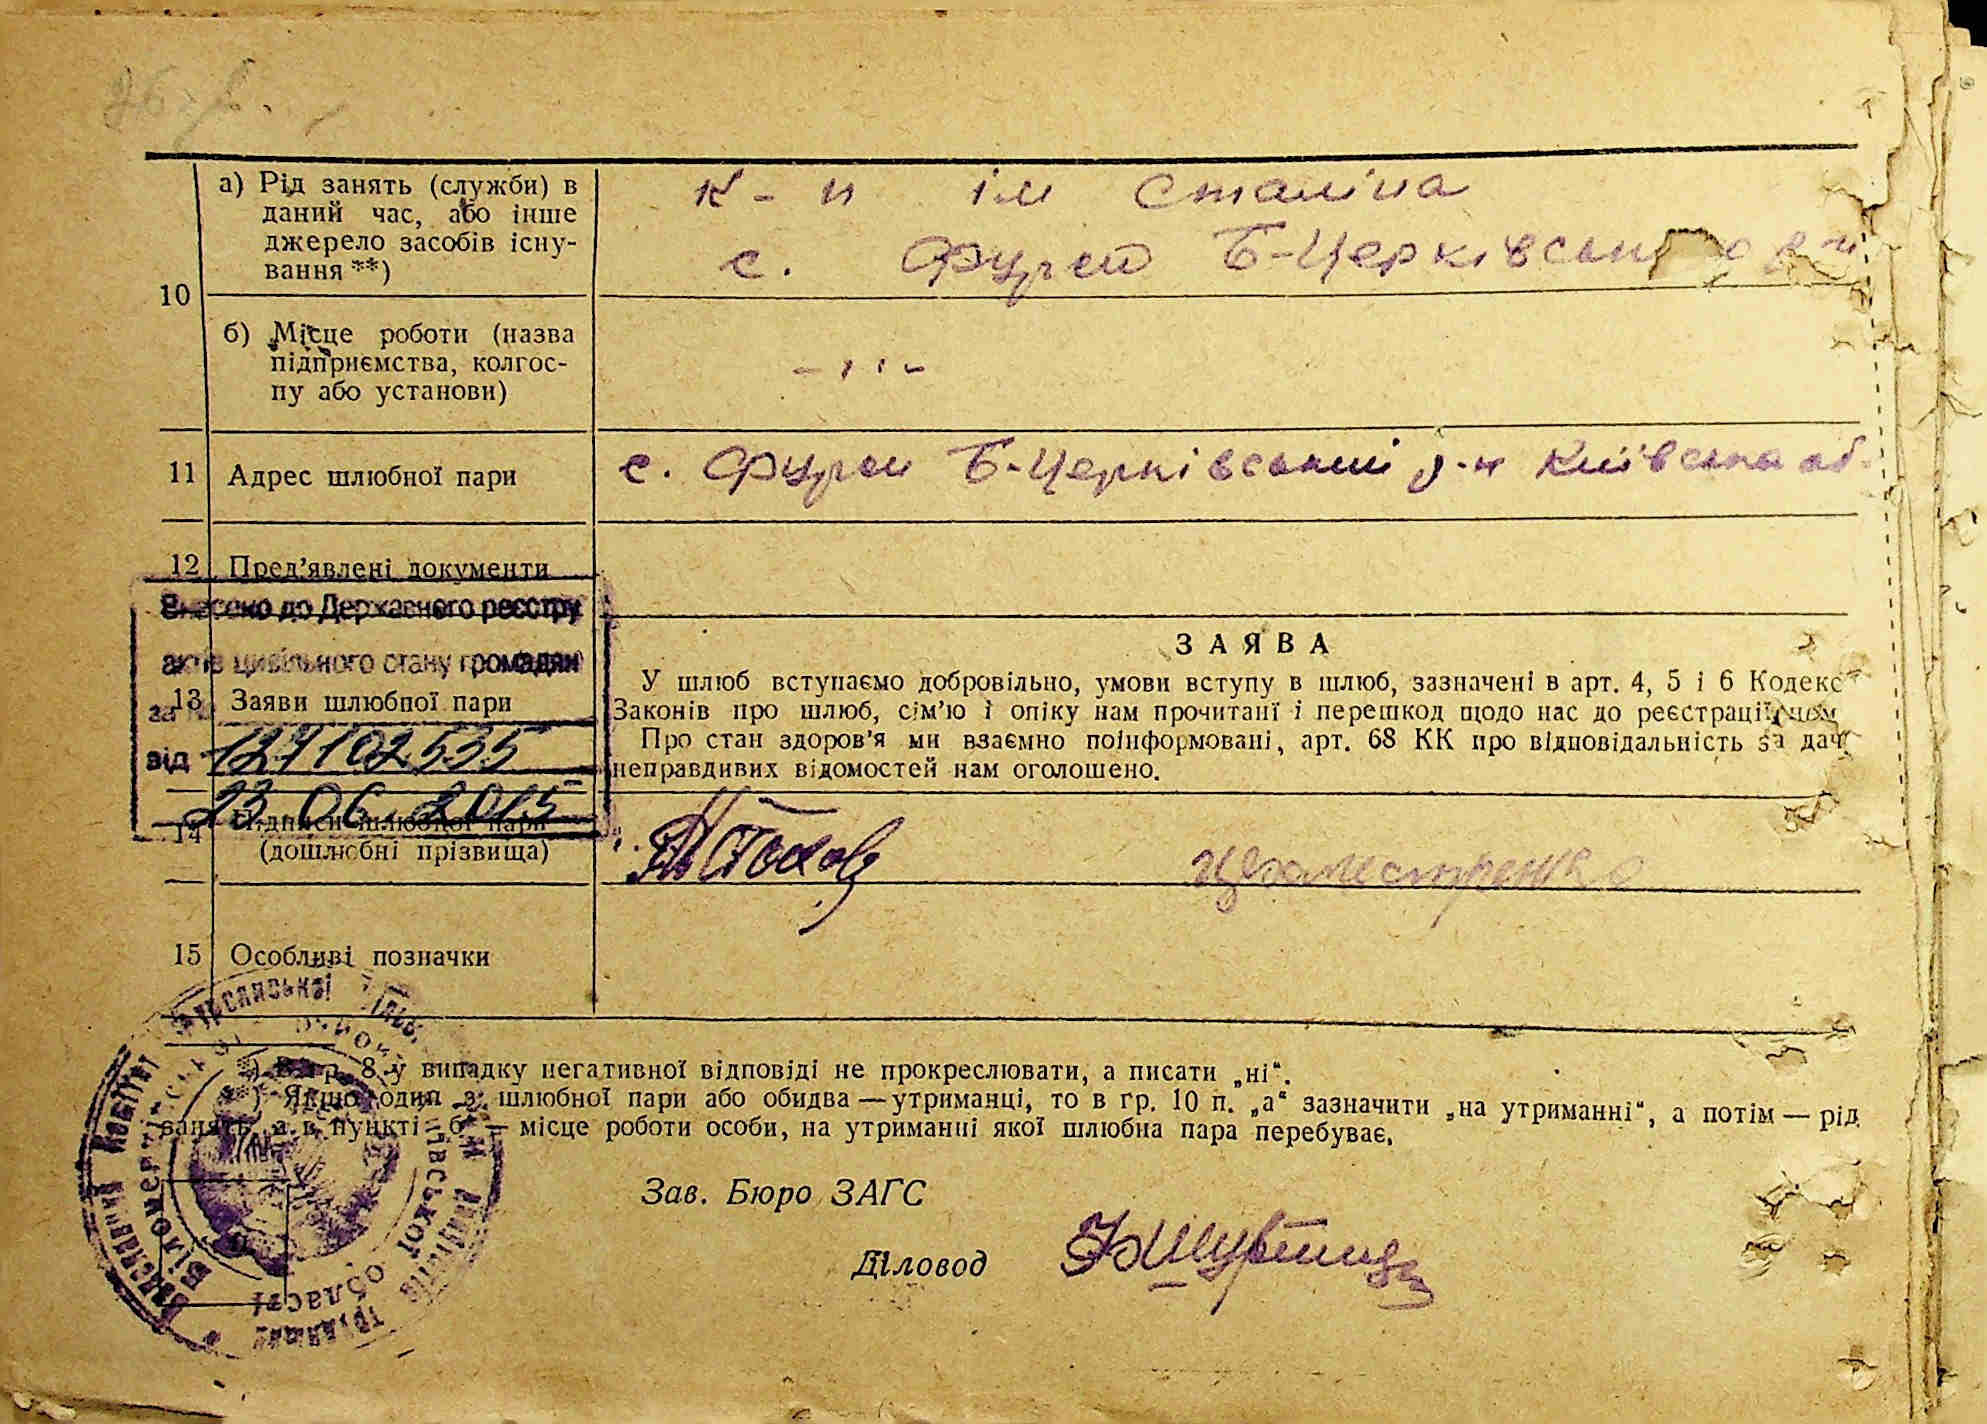 а) Рід занять (служби) в
даний час, або інше
джерело засобів існу-
вання **)
к-п ім Сталіна
с. Фурси Б-Церківськ
10
б) Місце роботи (назва
підприємства, колгос-
пу або установи)
- " -
11 Адрес шлюбної пари
с. Фурси Б-Церківський р-н Київська об.
12 Пред'явлені документи
Внесено до Державного реєстру
актів цивільного стану громадян
за
від 127102535
23.06.2015
13 Заяви шлюбної пари
ЗАЯВА
У шлюб вступаємо добровільно, умови вступу в шлюб, зазначені в арт. 4, 5 і 6 Кодекс
Законів про шлюб, сім'ю і опіку нам прочитані і перешкод щодо нас до реєстрації
Про стан здоров'я ми взаємно поінформовані, арт. 68 КК про відповідальність за дач
неправдивих відомостей нам оголошено.
14 Підписи шлюбної пари
(дошлюбні прізвища)
15 Особливі позначки
*) В гр. 8 у випадку негативної відповіді не прокреслювати, а писати „ні“.
**) Якщо один з шлюбної пари або обидва — утриманці, то в гр. 10 п. „а“ зазначити „на утриманні“, а потім — рід
занять, а в пункті „б“ — місце роботи особи, на утриманні якої шлюбна пара перебуває.
Зав. Бюро ЗАГС
Діловод
області